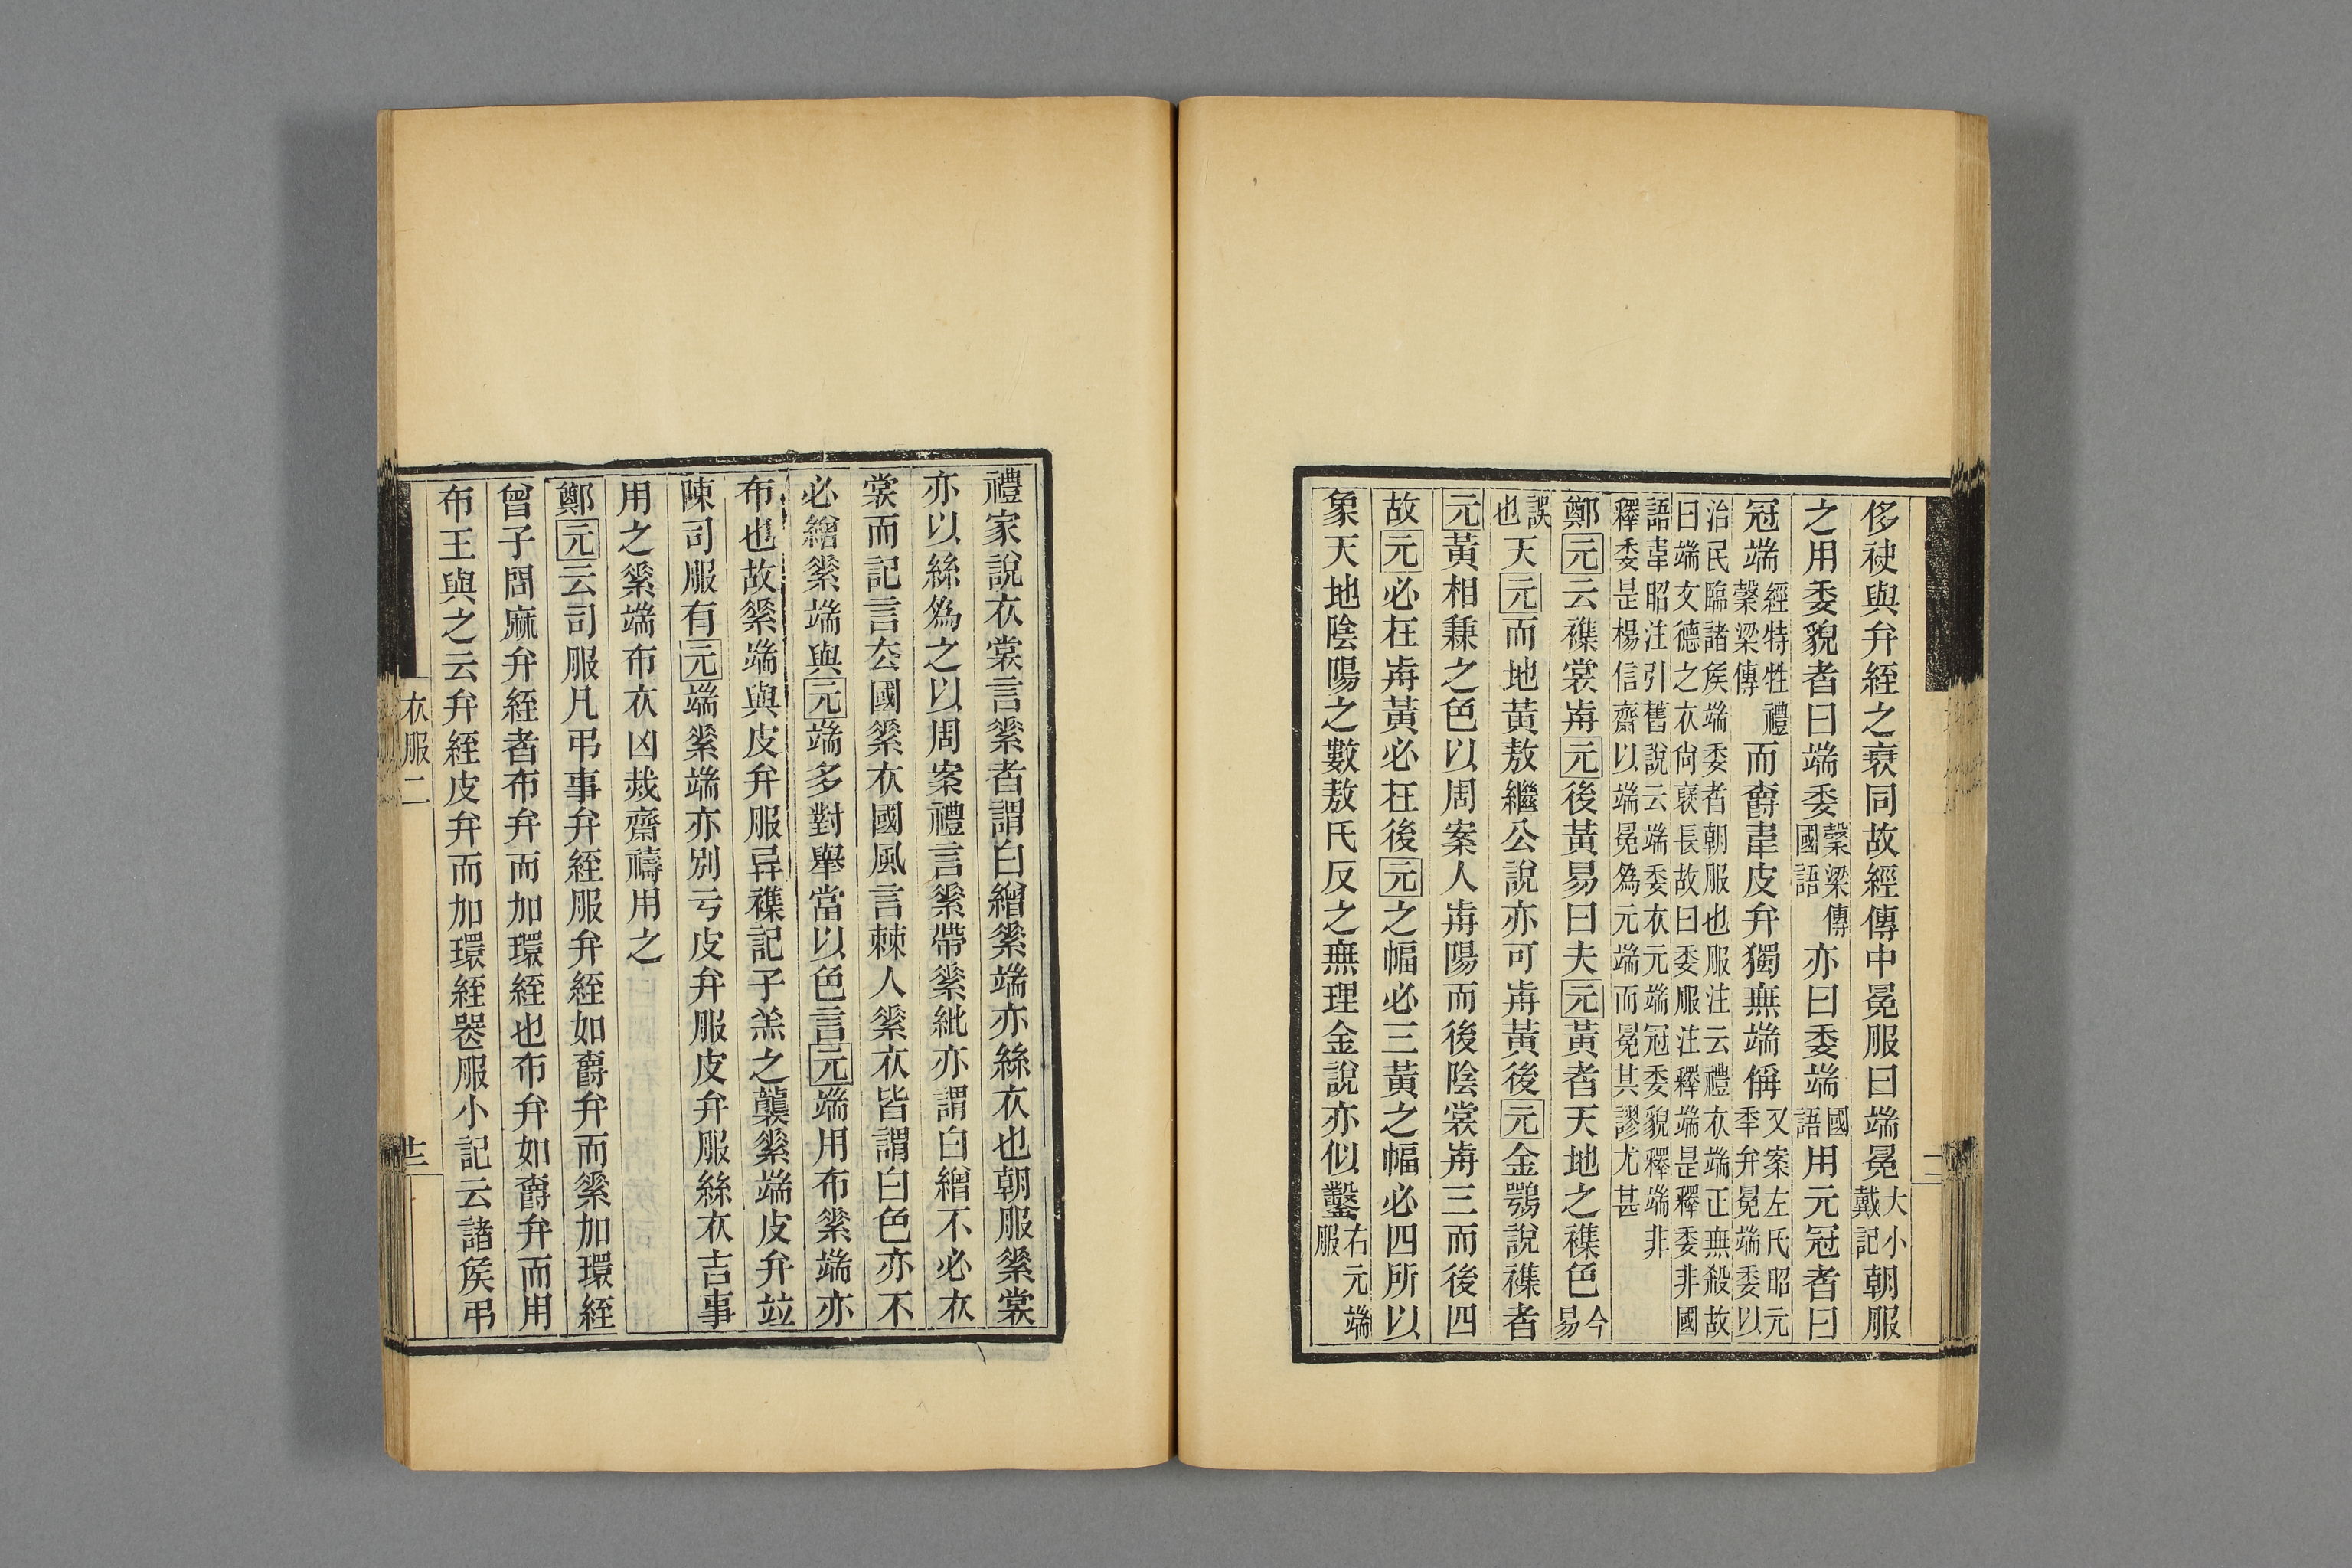 侈袂與弁絰之衰同故經傳中冕服曰端冕大小戴記朝服
之用委貌者曰端委穀梁傳國語亦曰委端國語用元冠者曰
冠端經特牲禮穀梁傳而爵韋皮弁獨無端偁又案左氏昭元秊弁冕端委以
治民臨諸矦端委者朝服也服注云禮衣端正無殺故曰端文德之衣尙襃長故曰委服注釋端是釋委非國
語韋昭注引舊說云端委衣元端冠委貌釋端非釋委是楊信齋以端冕爲元端而冕其謬尤甚
鄭元云襍裳歬元後黃易曰夫元黃者天地之襍色今易
誤也天元而地黃敖繼公說亦可歬黃後元金鶚說襍者
元黃相兼之色以周案人歬陽而後陰裳歬三而後四
故元必在歬黃必在後元之幅必三黃之幅必四所以
象天地陰陽之數敖氏反之無理金說亦似鑿右元端服
禮家說衣裳言緐者謂白繒緐端亦絲衣也朝服緐裳
亦以絲爲之以周案禮言緐帶緐紕亦謂白繒不必衣
裳而記言厺國緐衣國風言棘人緐衣皆謂白色亦不
必繒緐端與元端多對舉當以色言元端用布緐端亦
布也故緐端與皮弁服异襍記子羔之襲緐端皮弁竝
陳司服有元端緐端亦別亏皮弁服皮弁服絲衣吉事
用之緐端布衣凶烖齋禱用之
鄭元云司服凡弔事弁絰服弁絰如爵弁而緐加環絰
曾子問麻弁絰者布弁而加環絰也布弁如爵弁而用
布王與之云弁絰皮弁而加環絰器服小記云諸矦弔
衣服二